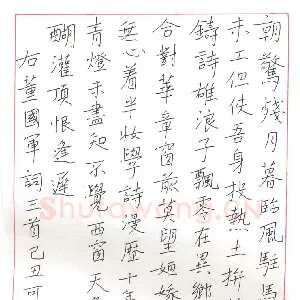 朝驚殘月暮臨風駐馬
未工但使吾身投熱土拚
鑄詩雄浪子飄零在異鄉
合對華章窗前望姻嫁
無心着半妝學詩漫歷十年
青燈未盡知不覺西窗天
醐灌頂恨逢遲
右董國軍詞三首己丑可